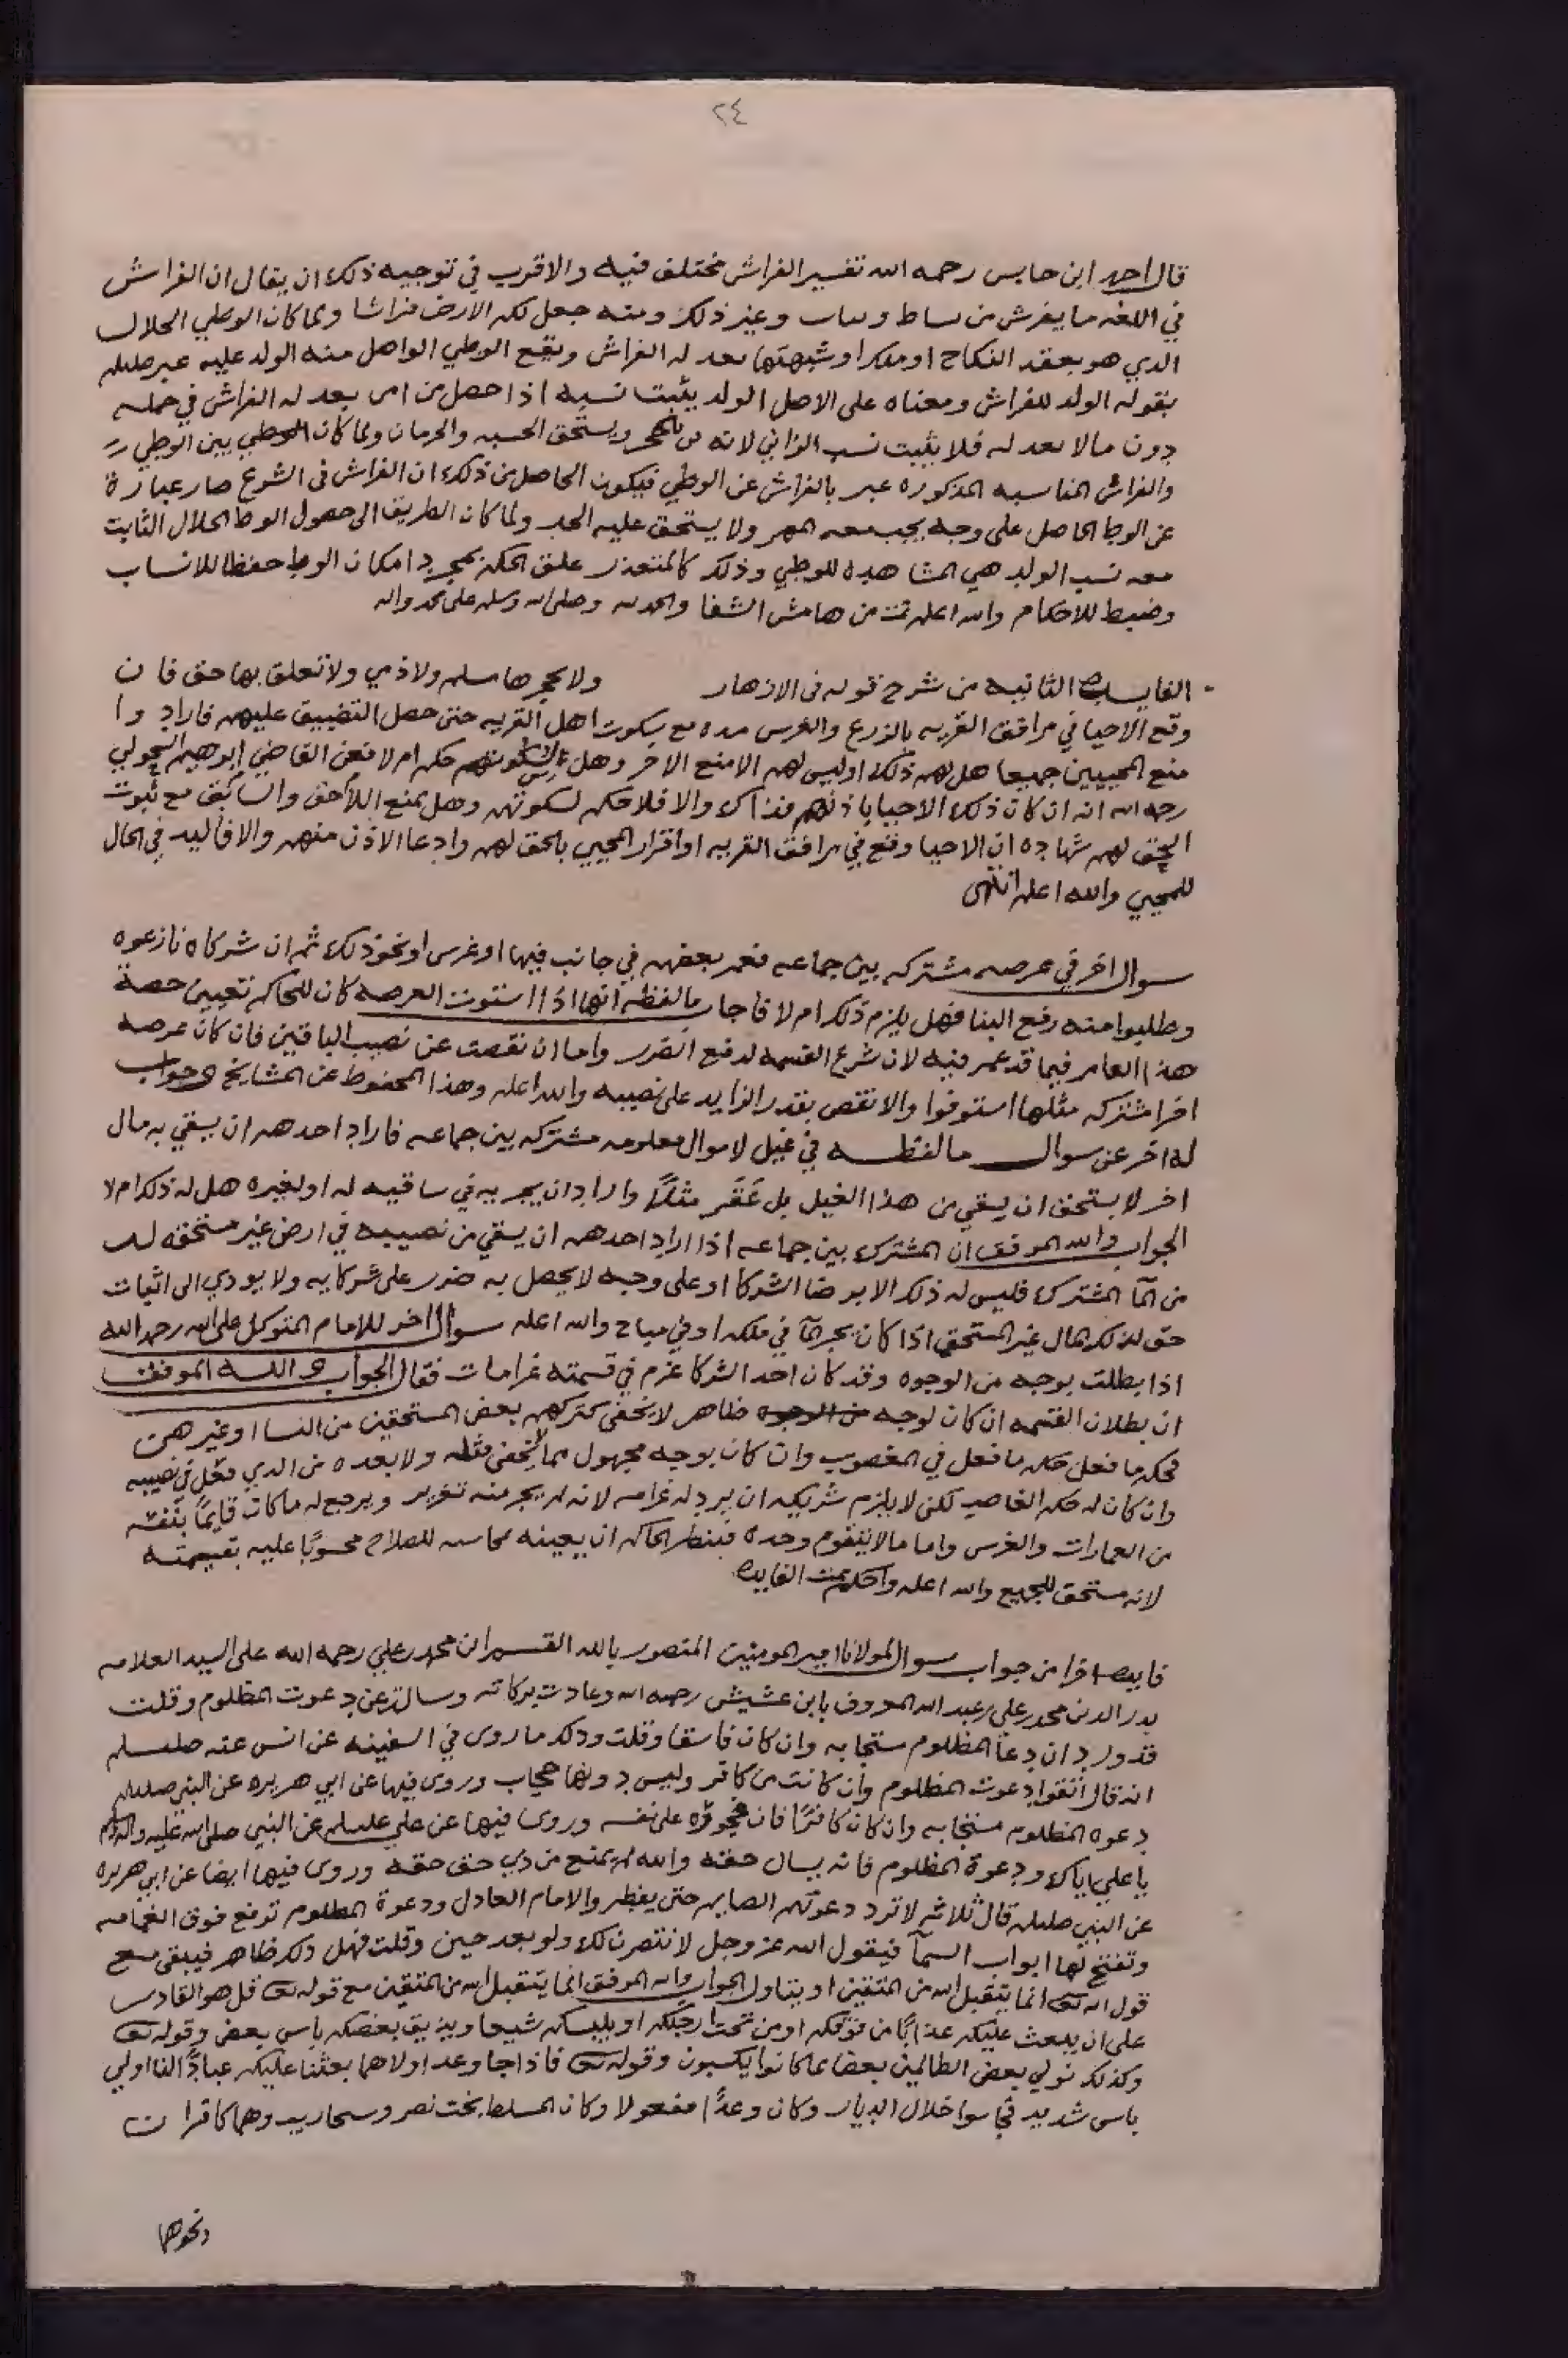 ٢٤
قال احمد ابن حابس رحمه الله تفسير الفراش مختلف فيه والاقرب في توجيه ذلك ان يقال ان الفراش
في اللغه ما يفرش من بساط وغير ذلك ومنه جعل لكم الارض فراشا ولما كان الوطي الحلال
الذي هو بعقد النكاح او ملك او شبهتهما يعد له الفراش ويقع الوطي الواصل منه الولد عليه عبر صلعم
بقوله الولد للفراش ومعناه على الاصل الولد يثبت نسبه اذا حصل من امر يعد له الفراش في حمله
دون مالا يعد له فلا يثبت نسب الزاني لانه ويستحق الخيبه والحرمان ولما كان بين الوطي
والفراش المناسبه المذكوره عبر بالفراش عن الوطي فيكون الحاصل من ذلك ان الفراش في الشرع صار عبارة
عن الوطا الحاصل على وجه يجب معه المهر ولا يستحق عليه الحد ولما كان الطريق الى حصول الوطا الحلال الثابت
معه نسب الولد هي المشاهده للوطي وذلك كالمتعذر علق الحكم بمجرد امكان الوطا حفظا للانساب
وضبطا للاحكام والله اعلم تمت من هامش الشفا والحمد لله وصلى الله وسلم على محمد واله
الفايده الثانيه من شرح قوله في الازهار ولا يحجرها مسلم ولا ذمي ولا تعلق بها حق فان
وقع الاحيا في مرافق القريه بالزرع والغرس مده مع سكوت اهل القريه حتى حصل التضييق عليهم فاراد وا
منع المحييين جميعا هل لهم ذلك او ليس لهم الا منع الاخر وهل لسكوتهم حكم ام لا فعن القاضي ابرهيم السحولي
رحمه الله انه ان كان ذلك الاحيا باذنهم فذاك والا فلا حكم لسكوتهم وهل يمنع اللاحق والسابق مع ثبوت
الحق لهم شهاده ان الاحيا وقع في مرافق القريه او اقرار المحيي بالحق لهم وادعا الاذن منهم والا فاليد في الحال
للمحيي والله اعلم انتهى
سوال اخر في عرصه مشتركه بين جماعه فعمر بعضهم في جانب فيها او غرس او نحو ذلك ثم ان شركاه نازعوه
وطلبوا منه رفع البنا فهل يلزم ذلك ام لا فاجاب ما لفظه انها اذا استوت العرصه كان للحاكم تعيين حصة
هذا العامر فيما قد عمر فيه لان شرع القسمه لدفع الضرر واما ان نقصت عن نصيب الباقين فان كان عرصه
اخرا مشتركه مثلها استوفوا والا نقص بقدر الزايد على نصيبه والله اعلم وهذا المحفوظ عن المشايخ وجواب
له اخر عن سوال ما لفظه في غيل لاموال معلومه مشتركه بين جماعه فاراد احدهم ان يسقي به مال
اخر لا يستحق ان يسقي من هذا الغيل بل عَقَر مثلاً واراد ان يجريه في ساقيه له او لغيره هل له ذلك ام لا
الجواب والله الموفق ان المشترك بين جماعه اذا اراد احدهم ان يسقي من نصيبه في ارض غير مستحقه له
من المآ المشترك فليس له ذلك الا برضا الشركا او على وجه لا يحصل به ضرر على شركايه ولا يودي الى اثبات
حق لذلك المال غير المستحق اذا كان يجر المآ في ملكه او في مباح والله اعلم سوال اخر للامام المتوكل على الله رحمه الله
اذا بطلت بوجه من الوجوه وقد كان احد الشركا غرم في قسمته غرامات فقال الجواب والله الموفق
ان بطلان القسمه ان كان لوجه من الوجوه ظاهر لا يخفى كتركهم بعض المستحقين من النسا او غيرهن
فحكم ما فعل حكم ما فعل في المغصوب وان كان بوجه مجهول مما لا يخفى مثله ولا بعده من الذي فعل في نصيبه
وان كان له حكم الغاصب لكن لا يلزم شريكه ان يرد له غرامه لانه لم يجر منه تغرير ويرجع له ما كان قايمًا بنفسه
من العمارات والغرس واما ما لا يتقوم وحده فينظر الحاكم ان يعينه للصلاح محسوبًا عليه بقيمته
لانه مستحق للجميع والله اعلم واحكم تمت الفايده
فايده اخرا من جواب سوال لمولانا امير المومنين المنصور بالله القسم ابن محمد بن علي رحمه الله على السيد العلامه
بدر الدين محمد بن علي بن عبد الله المعروف بابن عشيش رحمه الله وعادت بركاته وسالت عن دعوت المظلوم وقلت
قد ورد ان دعآ المظلوم مستجابه وان كان فاسقا وقلت وذلك ما روى في السفينه عن انس عنه صلعم
انه قال اتقوا دعوت المظلوم وان كانت من كافر وليس دونها حجاب وروى فيها عن ابي هريره عن النبي صلعم
دعوه المظلوم مستجابه وان كان كافرًا فان فجوره على نفسه وروى فيها عن علي علسلم عن النبي صلى الله عليه واله وسلم
يا علي اياك ودعوة المظلوم فانه يسال حقه والله لم يمنع من ذي حق حقه وروى فيها ايضا عن ابي هريره
عن النبي صلعم قال ثلاثه لا ترد دعوتهم الصايم حتى يفطر والامام العادل ودعوة المظلوم ترفع فوق الغمامه
وتفتح لها ابواب السمآ فيقول الله عز وجل لانتصرن لك ولو بعد حين وقلت فهل ذلك ظاهر فيبقى مع
قول الله تعالى انما يتقبل الله من المتقين او يتناول الجواب والله الموفق انما يتقبل الله من المتقين مع قوله تعالى قل هو القادر
على ان يبعث عليكم عذابًا من فوقكم او من تحت ارجلكم او يلبسكم شيعا ويذيق بعضكم باس بعض وقوله تعالى
وكذلك نولي بعض الظالمين بعضا بما كانوا يكسبون وقوله تعالى فاذا جا وعد اولاهما بعثنا عليكم عبادًا لنا اولي
باس شديد فجاسوا خلال الديار وكان وعدًا مفعولا وكان المسلط بخت نصر وسنحاريب وهما كافران
ونحوها